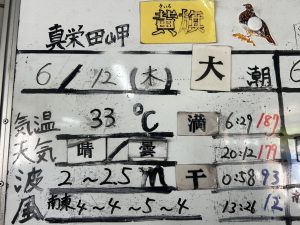 真栄田岬
きいろ
黄旗
6/12(木) 大潮
気温 33℃ 満 6:29 187
天気 晴/曇 20:12 179
波 2~2.5M 干 0:58 93
風 南東 4~4~5~4 13:26 12